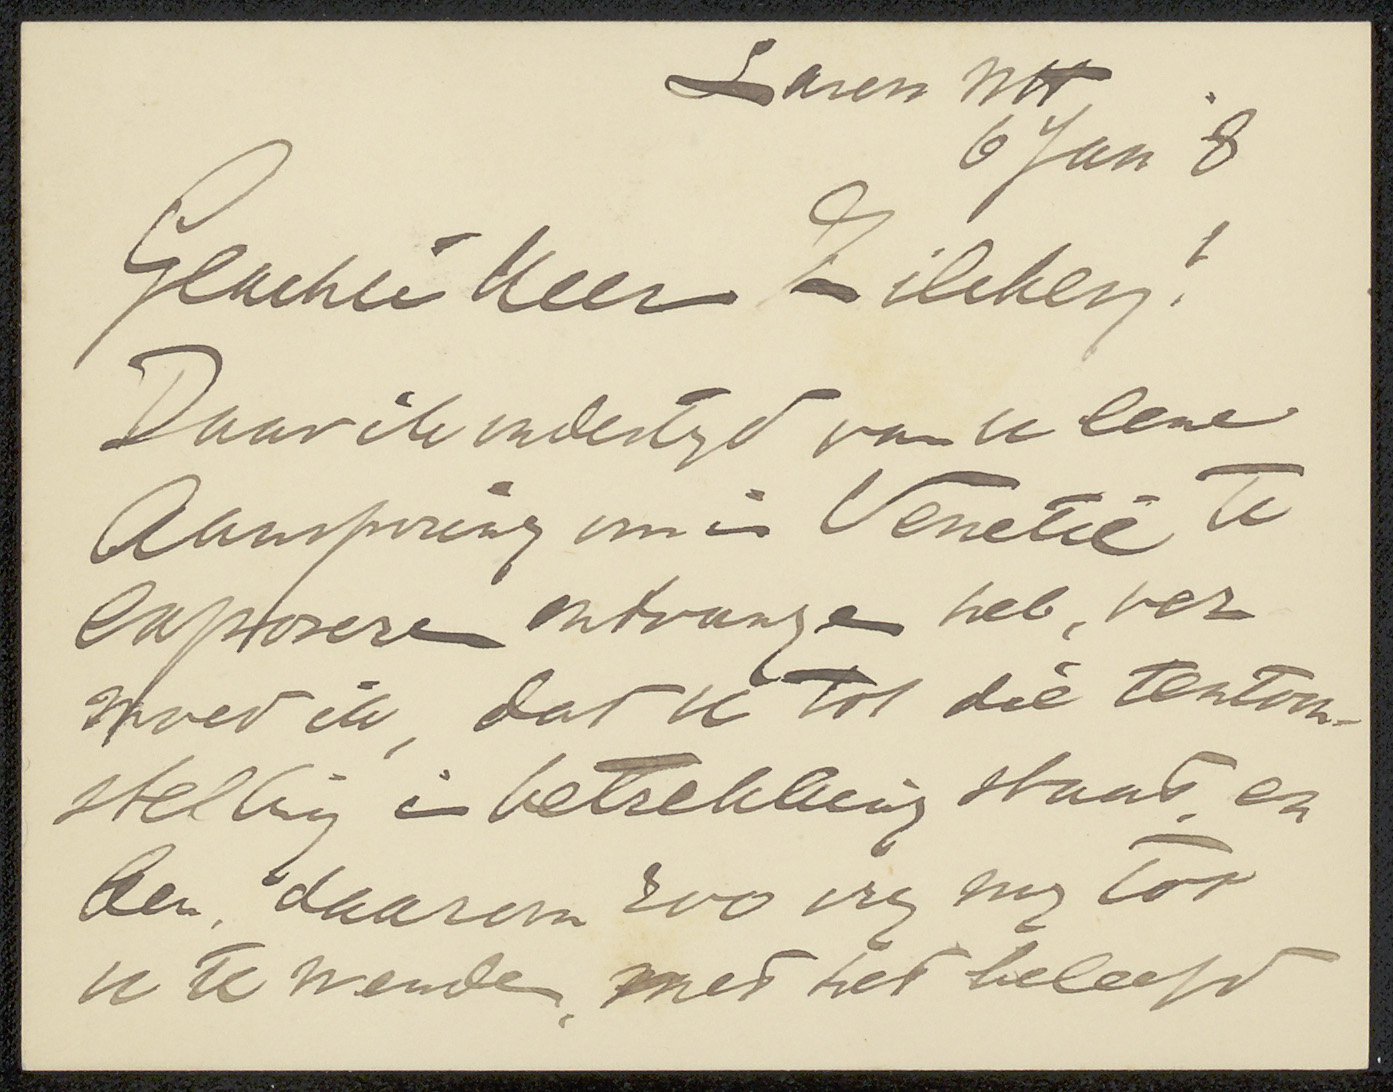 Laren NH
6 Jan '8
Geachte Heer Zilcken!
Daar ik indertijd van u eene
Aansporing om in Venetië te
exposeren ontvangen heb, ver
moed ik, dat u tot die tentoon-
stelling in betrekking staat, en
ben, daarom zoo vrij mij tot
u te wenden, met het beleefd